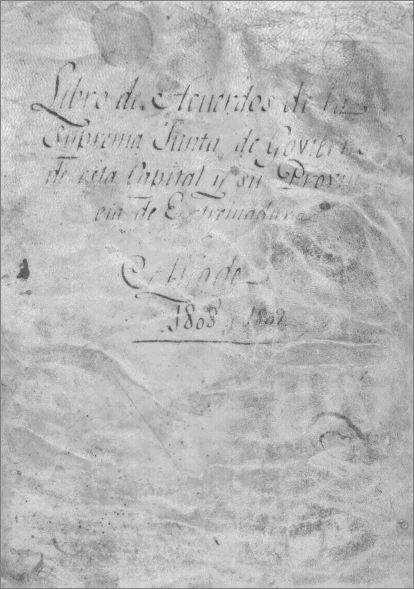 Libro de Acuerdos de la
Suprema Junta de Govierno
de esta Capital y su Provin
cia de Extremadura
1808 y